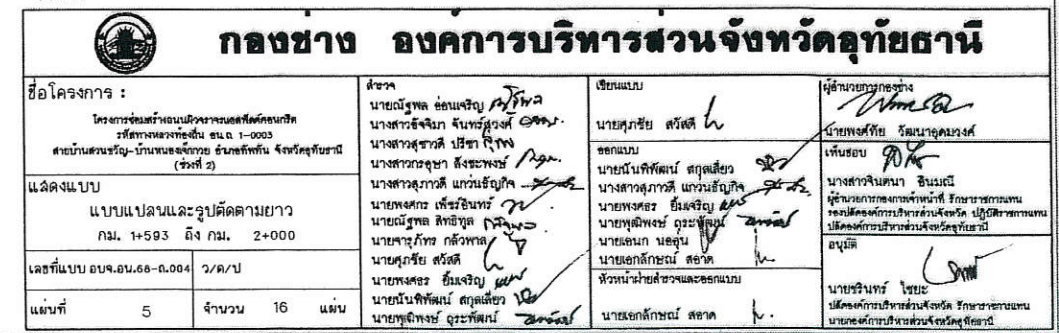 กองช่าง องค์การบริหารส่วนจังหวัดอุทัยธานี
ชื่อโครงการ :
โครงการซ่อมสร้างถนนผิวจราจรแอสฟัลต์คอนกรีต
รหัสทางหลวงท้องถิ่น อน.ถ. 1-0003
สายบ้านสวนขวัญ-บ้านหนองเจ๊กกวย อำเภอทัพทัน จังหวัดอุทัยธานี
(ช่วงที่ 2)
แสดงแบบ
แบบแปลนและรูปตัดตามยาว
กม. 1+593 ถึง กม. 2+000
เลขที่แบบ อบจ.อน.68-ถ.004
ว/ด/ป
แผ่นที่ 5 จำนวน 16 แผ่น
สำรวจ
นายณัฐพล อ่อนเจริญ
นางสาวอัจจิมา จันทร์สุวงศ์
นางสาวสุชาวดี ปรีชา
นางสาวกรอุษา สังชะพงษ์
นางสาวสุภาวดี แก่วนธัญกิจ
นายพงศกร เพ็ชร์อินทร์
นายณัฐพล สิทธิทูล
นายจารุภัทร กลัวพาล
นายศุภชัย สวัสดี
นายพงศธร ยิ้มเจริญ
นายนันทิพัฒน์ สกุลเลี่ยว
นายพุฒิพงษ์ ฤระพัฒน์
เขียนแบบ
นายศุภชัย สวัสดี
ออกแบบ
นายนันทิพัฒน์ สกุลเลี่ยว
นางสาวสุภาวดี แก่วนธัญกิจ
นายพงศธร ยิ้มเจริญ
นายพุฒิพงษ์ ฤระพัฒน์
นายเอนก นออุ่น
นายเอกลักษณ์ สอาด
หัวหน้าฝ่ายสำรวจและออกแบบ
นายเอกลักษณ์ สอาด
ผู้อำนวยการกองช่าง
นายพงศ์ทัย วัฒนาอุดมวงศ์
เห็นชอบ
นางสาวจินตนา อินมณี
ผู้อำนวยการกองการเจ้าหน้าที่ รักษาราชการแทน
รองปลัดองค์การบริหารส่วนจังหวัด ปฏิบัติราชการแทน
ปลัดองค์การบริหารส่วนจังหวัดอุทัยธานี
อนุมัติ
นายชรินทร์ ไชยะ
ปลัดองค์การบริหารส่วนจังหวัด รักษาราชการแทน
นายกองค์การบริหารส่วนจังหวัดอุทัยธานี